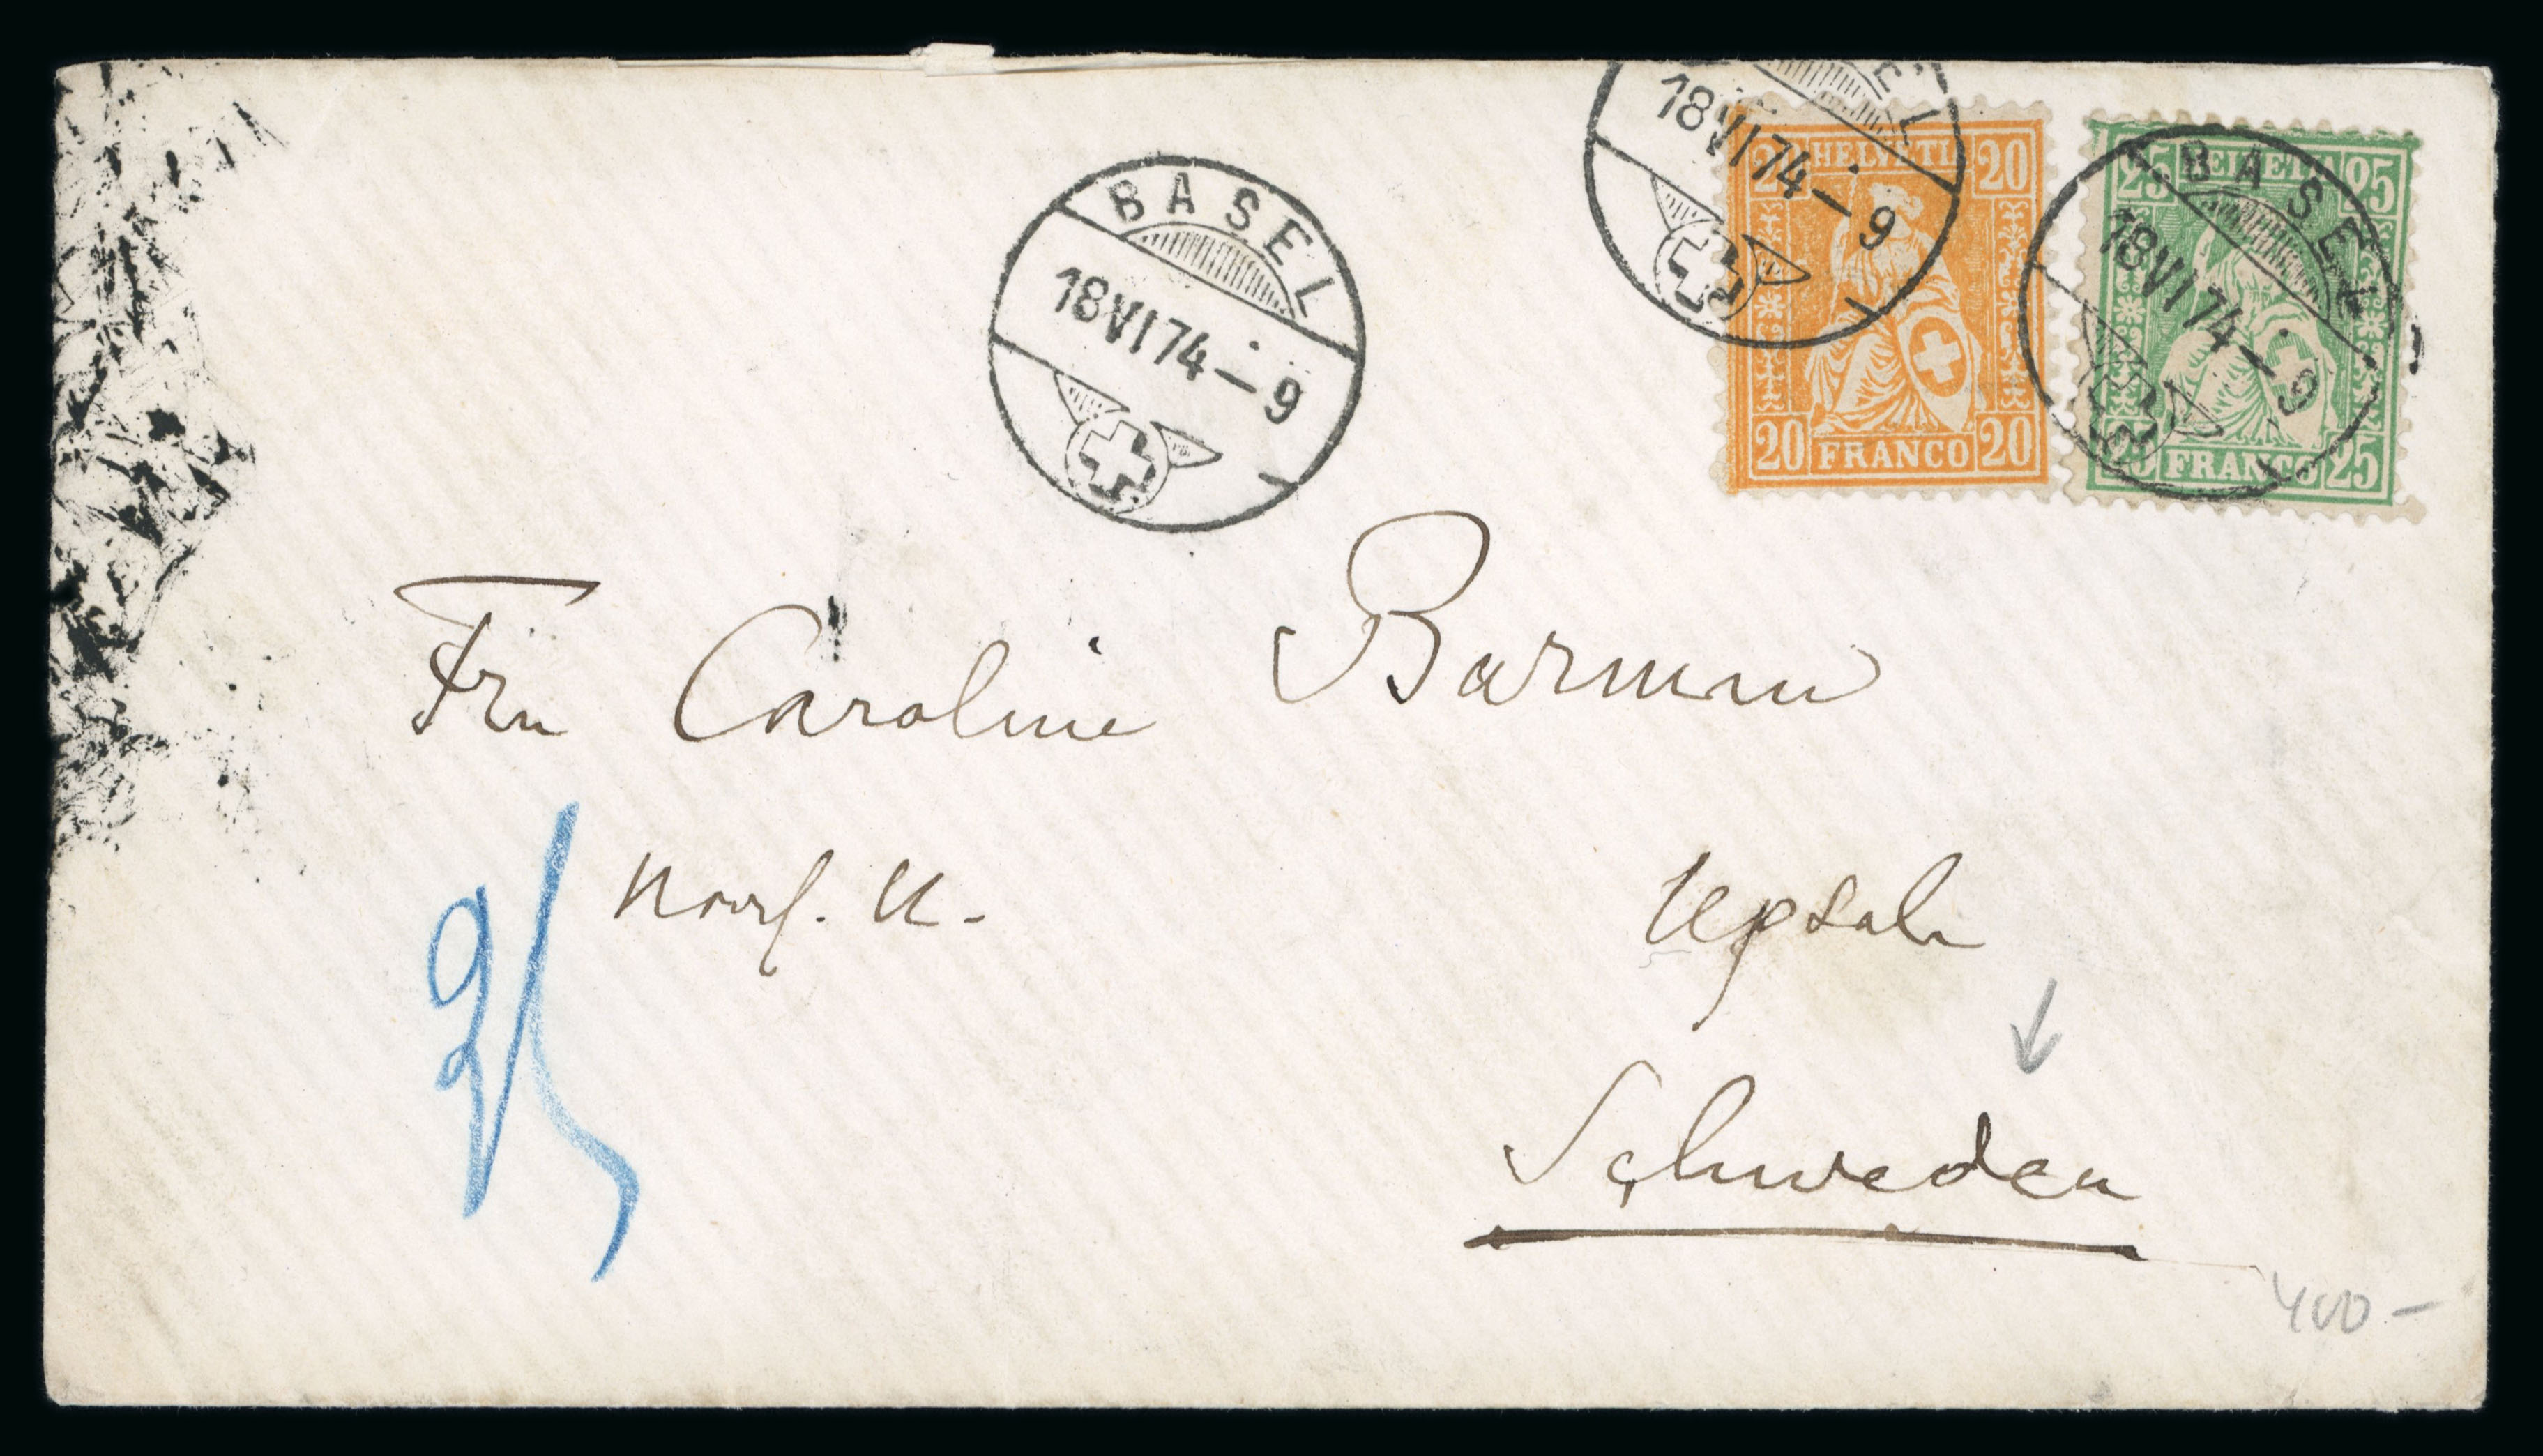 BASEL
18 VI 74 – 9
EL
18 VI 74 – 9
20 HELVETI 20
20 FRANCO 20
BASEL
18 VI 74 – 9
25 HELVETIA 25
25 FRANCO 25
Fru Caroline Burman
Upsala
Schweden
400 –